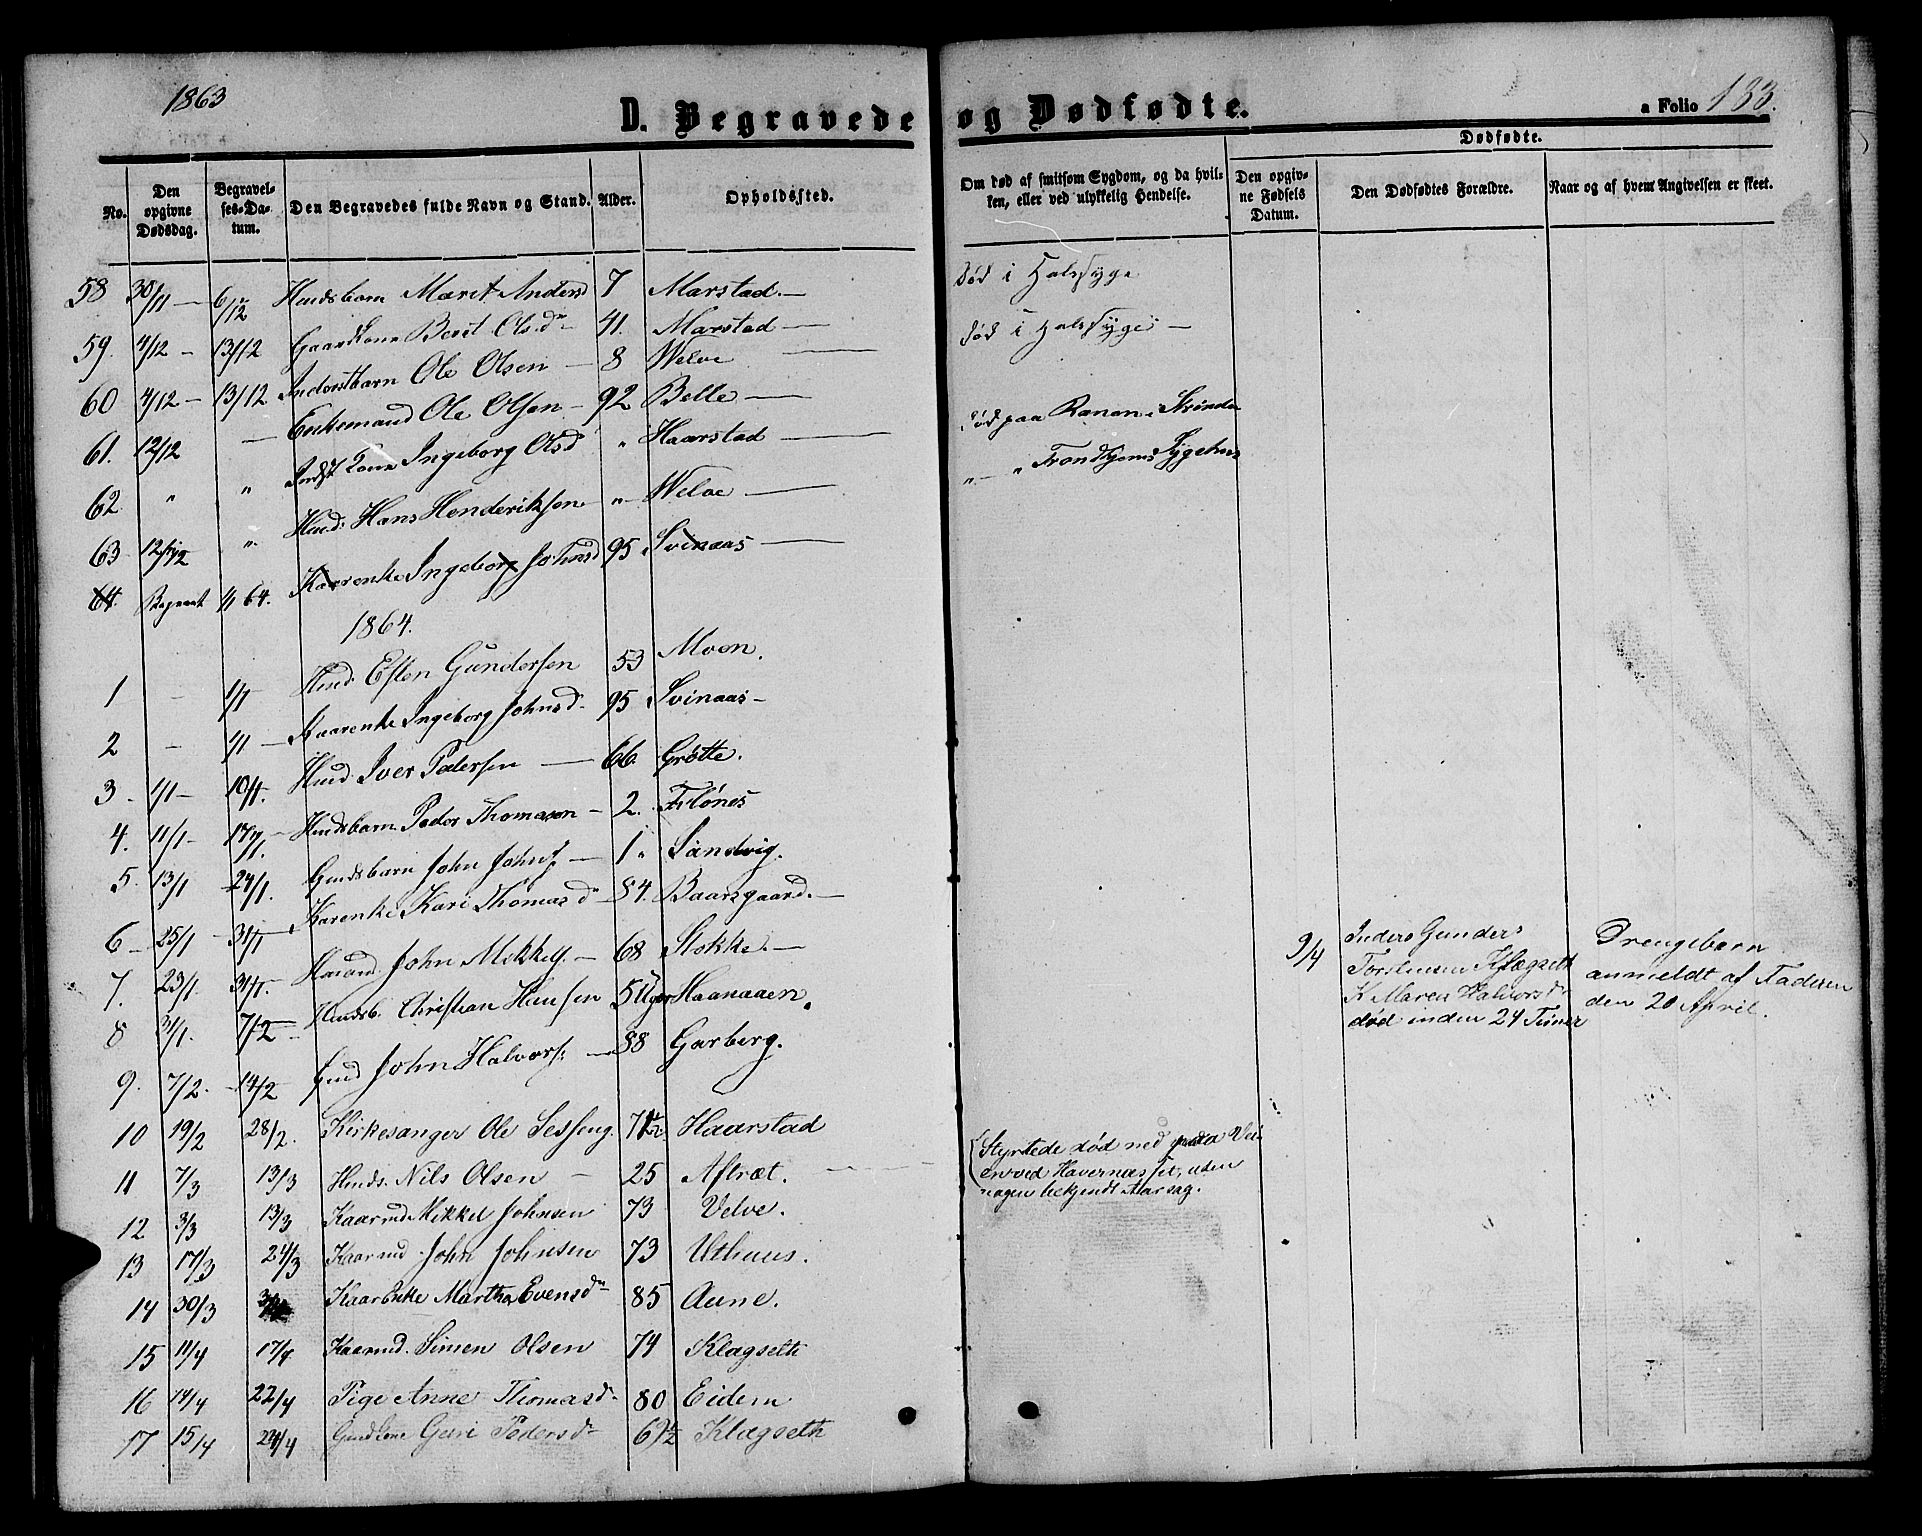 1863
D. Begravede og Dødfødte.
a Folio 133.
No.
Den opgivne Dødsdag.
Begravelses-Datum.
Den Begravedes fulde Navn og Stand.
Alder.
Opholdssted.
Om død af smitsom Sygdom, og da hvilken, eller ved ulykkelig Hendelse.
Dødfødte.
Den opgivne Fødsels Datum.
Den Dødfødtes Forældre.
Naar og af hvem Angivelsen er skeet.
58 30/11 — 6/12 Huusbarn Marit Andersd 7 Marstad. — død i Halssyge
59. 4/12 — 13/12 Gaardkone Berit Olsdr — 41. Marstad — død i Halssyge —
60 4/12 — 13/12 Inderstbarn Ole Olsen — 8 Welve —
61. 12/12 — Enkemand Ole Olsen — 92 Belle —
62 " " Indst Kone Ingeborg Olsd " Haarstad — død paa Ranen i Strinda
63 12/12 " Huusd. Hans Henderiksen " Welve — " Trondhjems Sygehus
64. Begravet 1/1 64. Kaarenke Ingeborg Johnsd 95 Svinaas —
1864.
1 — 1/1 Huusd. Esten Gundersen 53 Moen.
2 — 1/1 — Kaarenke Ingeborg Johnsd. 95 Svinaas —
3 — 1/1 — 10/1. Huusd Iver Pedersen — 66. Grøtte.
4. 11/1 — 17/1. Huusbarn Peder Thomasen — 2. Flønes
5. 13/1 — 24/1. Gmdsbarn John Johns — 1 " Sandvig.
6 — 25/1 — 31/1 Karenke Kari Thomasd — 84. Baarsgaard. —
7. 23/1. 31/1. John Mikkels. — 68 Stokke. —
8 31/1. 7/2 — Huusb. Christian Hansen 5 Uger Haanaaen.
9. 7/2. — 14/2 Gmd John Halvors: — 88 Garberg.
9/4
Gunders
Torstensen Klægseth
K Maren Halvorsdr
død inden 24 Timer
Drengebarn
anmeldt af Faderen
den 20 April.
10 19/2 28/2. Kirkesanger Ole Sesseng. 71 1/2 Haarstad
11 7/3 13/3 Huusd. Nils Olsen — 25 Aftræt.
Styrtede død ned paa Vei-
en ved Havernesset, uden
nogen bekjendt Aarsag.
12 3/3 13/3 Kaarmd Mikkel Johnsen 73 Velve.
13 17/3 24/3 Kaarmd John Johnsen 73 Uthuus.
14 30/3 Kaarenke Martha Evensdr 85 Aune.
15 11/4 17/4 Kaarmd. Simen Olsen 74 Klægseth
16 14/4 22/4 Pige Anne Thomasdr 80 Eidem
17 15/4 24/4 Gmdkone Guri Pedersdr 69 1/2 Klægseth